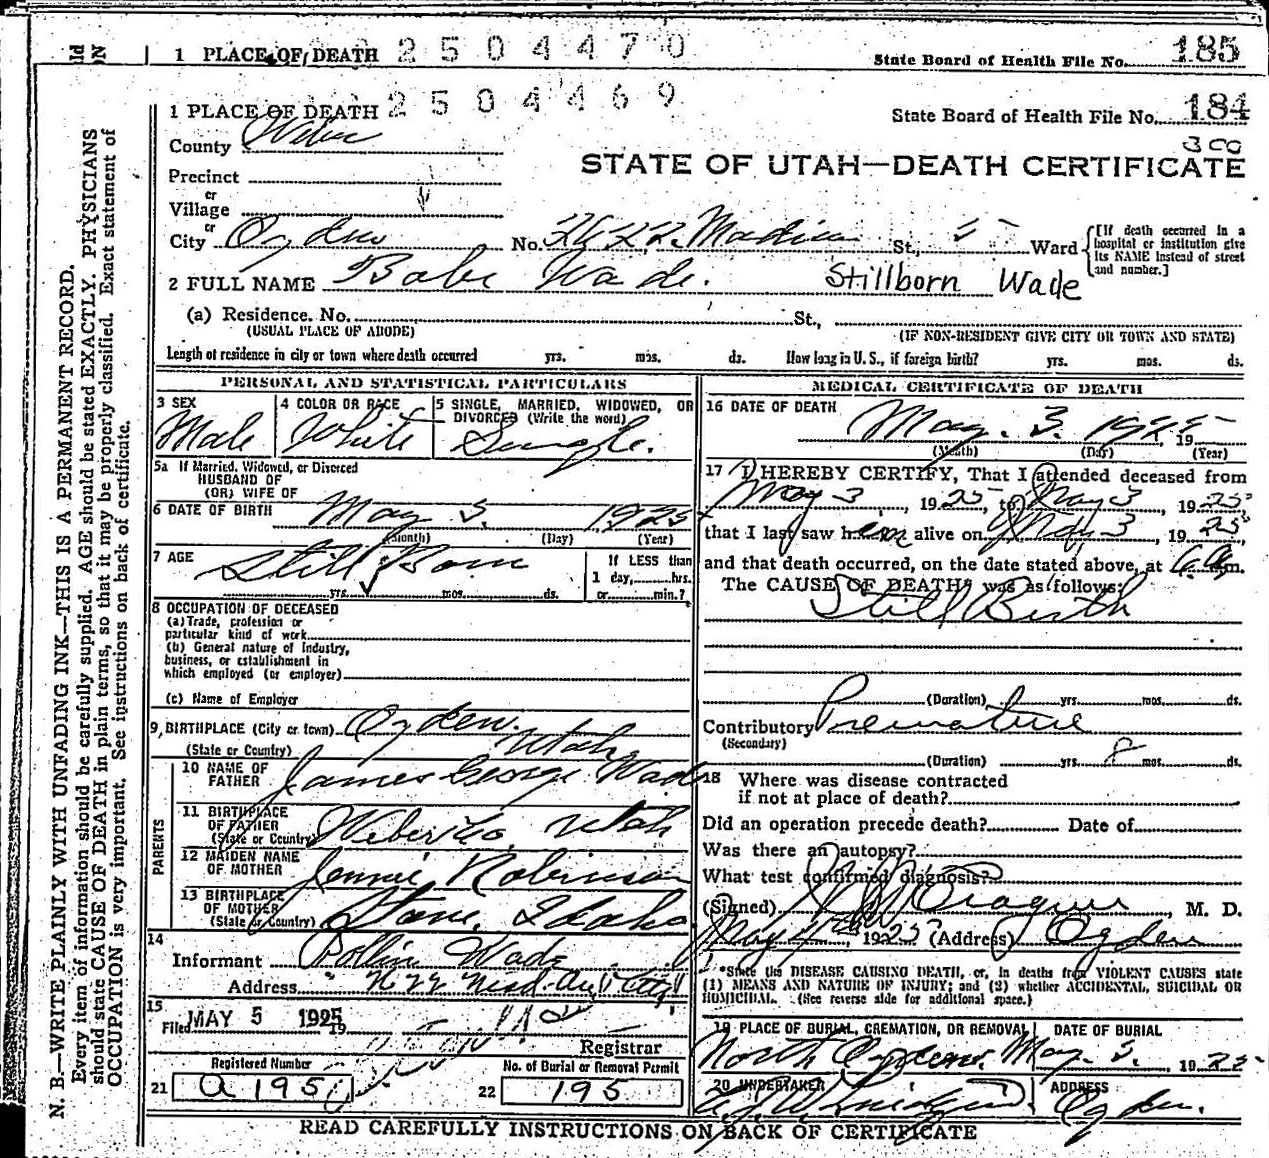 1 PLACE OF DEATH 2504470 State Board of Health File No. 185
1 PLACE OF DEATH 2504469 State Board of Health File No. 184
300
County Weber
STATE OF UTAH—DEATH CERTIFICATE
Precinct
or
Village
or
City Ogden No. 2622 Madison St., 5 Ward
[If death occurred in a hospital or institution give its NAME instead of street and number.]
2 FULL NAME Babe Wade. Stillborn Wade
(a) Residence. No. St.,
(USUAL PLACE OF ABODE) (IF NON-RESIDENT GIVE CITY OR TOWN AND STATE)
Length of residence in city or town where death occurred yrs. mos. ds. How long in U. S., if foreign birth? yrs. mos. ds.
PERSONAL AND STATISTICAL PARTICULARS
3 SEX
Male
4 COLOR OR RACE
White
5 SINGLE, MARRIED, WIDOWED, OR
DIVORCED (Write the word)
Single.
5a If Married, Widowed, or Divorced
HUSBAND OF
(OR) WIFE OF
6 DATE OF BIRTH May 3. 1925
(Month) (Day) (Year)
7 AGE Still Born
yrs. mos. ds.
If LESS than
1 day, hrs.
or min.?
8 OCCUPATION OF DECEASED
(a) Trade, profession or
particular kind of work
(b) General nature of Industry,
business, or establishment in
which employed (or employer)
(c) Name of Employer
9 BIRTHPLACE (City or town) Ogden.
(State or Country) Utah
PARENTS
10 NAME OF
FATHER James George Wade
11 BIRTHPLACE
OF FATHER
(State or Country) Weber Co. Utah
12 MAIDEN NAME
OF MOTHER Jennie Robinson
13 BIRTHPLACE
OF MOTHER
(State or Country) Stone, Idaho
14
Informant Wade
Address
15
Filed MAY 5 1925 19
Registrar
Registered Number
21 a 195
No. of Burial or Removal Permit
22 195
MEDICAL CERTIFICATE OF DEATH
16 DATE OF DEATH
May. 3. 1925 19
(Month) (Day) (Year)
17 I HEREBY CERTIFY, That I attended deceased from
May 3, 1925, to May 3, 1925
that I last saw h alive on May 3, 1925,
and that death occurred, on the date stated above, at 6 a.m.
The CAUSE OF DEATH* was as follows:
Still Birth
(Duration) yrs. mos. ds.
Contributory Premature
(Secondary)
(Duration) yrs. 8 mos. ds.
18 Where was disease contracted
if not at place of death?
Did an operation precede death? Date of
Was there an autopsy?
What test confirmed diagnosis?
(Signed) M. D.
May 4, 1925 (Address) Ogden
*State the DISEASE CAUSING DEATH, or, in deaths from VIOLENT CAUSES state
(1) MEANS AND NATURE OF INJURY; and (2) whether ACCIDENTAL, SUICIDAL OR
HOMICIDAL. (See reverse side for additional space.)
19 PLACE OF BURIAL, CREMATION, OR REMOVAL
North Ogden.
DATE OF BURIAL
May. 3. 1925
20 UNDERTAKER
ADDRESS
Ogden.
READ CAREFULLY INSTRUCTIONS ON BACK OF CERTIFICATE
N. B.—WRITE PLAINLY WITH UNFADING INK—THIS IS A PERMANENT RECORD.
Every item of information should be carefully supplied. AGE should be stated EXACTLY. PHYSICIANS
should state CAUSE OF DEATH in plain terms, so that it may be properly classified. Exact statement of
OCCUPATION is very important. See instructions on back of certificate.